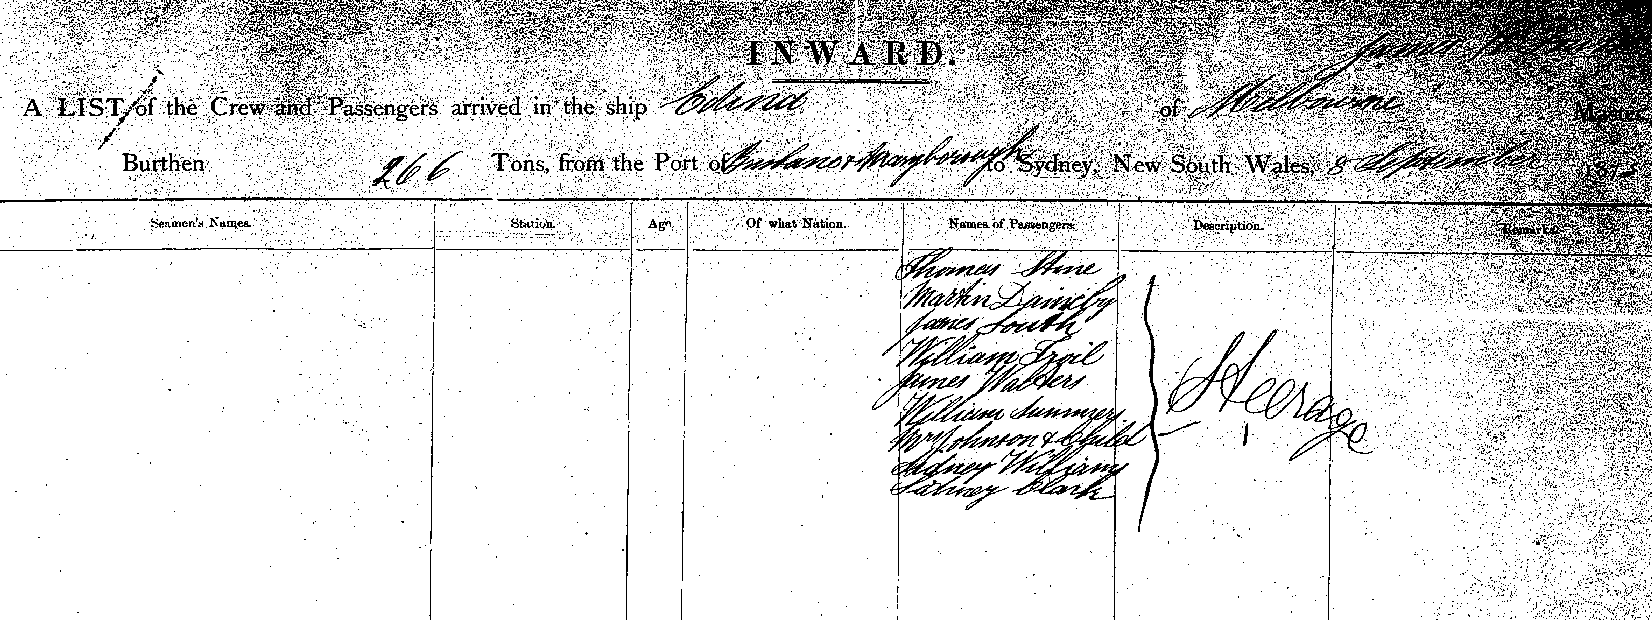 INWARD.
A LIST of the Crew and Passengers arrived in the ship Edina of Melbourne Master,
Burthen 266 Tons, from the Port of Brisbane & Maryborough to Sydney, New South Wales, 8 September 187
Seamen's Names. Station. Age Of what Nation. Names of Passengers. Description. Remarks.
Thomas Stine
Martin
James South
William
James Walters
William Summers
Mrs Johnson & Child
Sidney Williams
Sidney Clark
Steerage